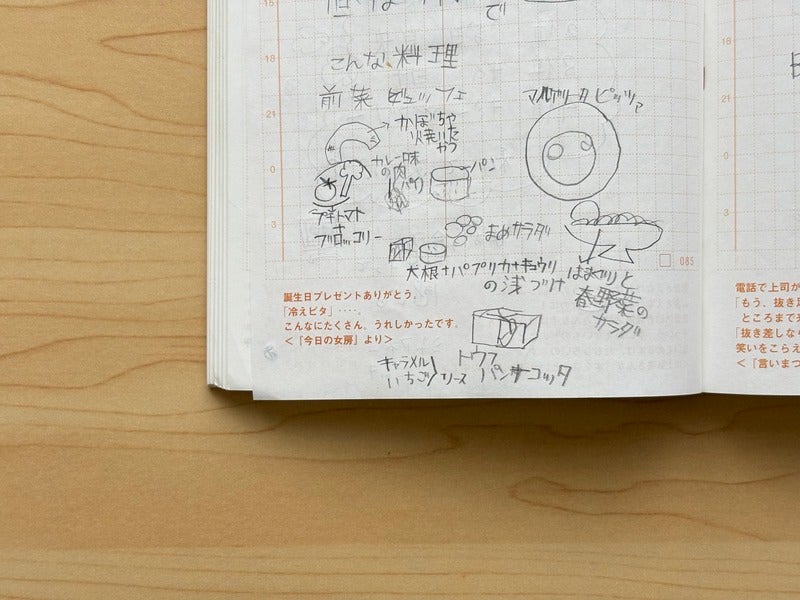 15
で
こんな料理
前菜ビュッフェ
21
マルゲリータ ピッツァ
21
かぼちゃ
焼いた
やつ
カレー味
の肉
パン
0
0
プチトマト
+
ブロッコリー
まめサラダ
3
3
大根+パプリカ+キュウリ
の浅づけ
はまぐりと
春野菜の
サラダ
085
誕生日プレゼントありがとう。
「冷えピタ」‥‥。
こんなにたくさん。うれしかったです。
<『今日の女房』より>
トウフ
パンナコッタ
キャラメル
いちご
ソース
電話で上司が
「もう、抜き足
ところまで来
「抜き差しなら
笑いをこらえ
<『言いまつ